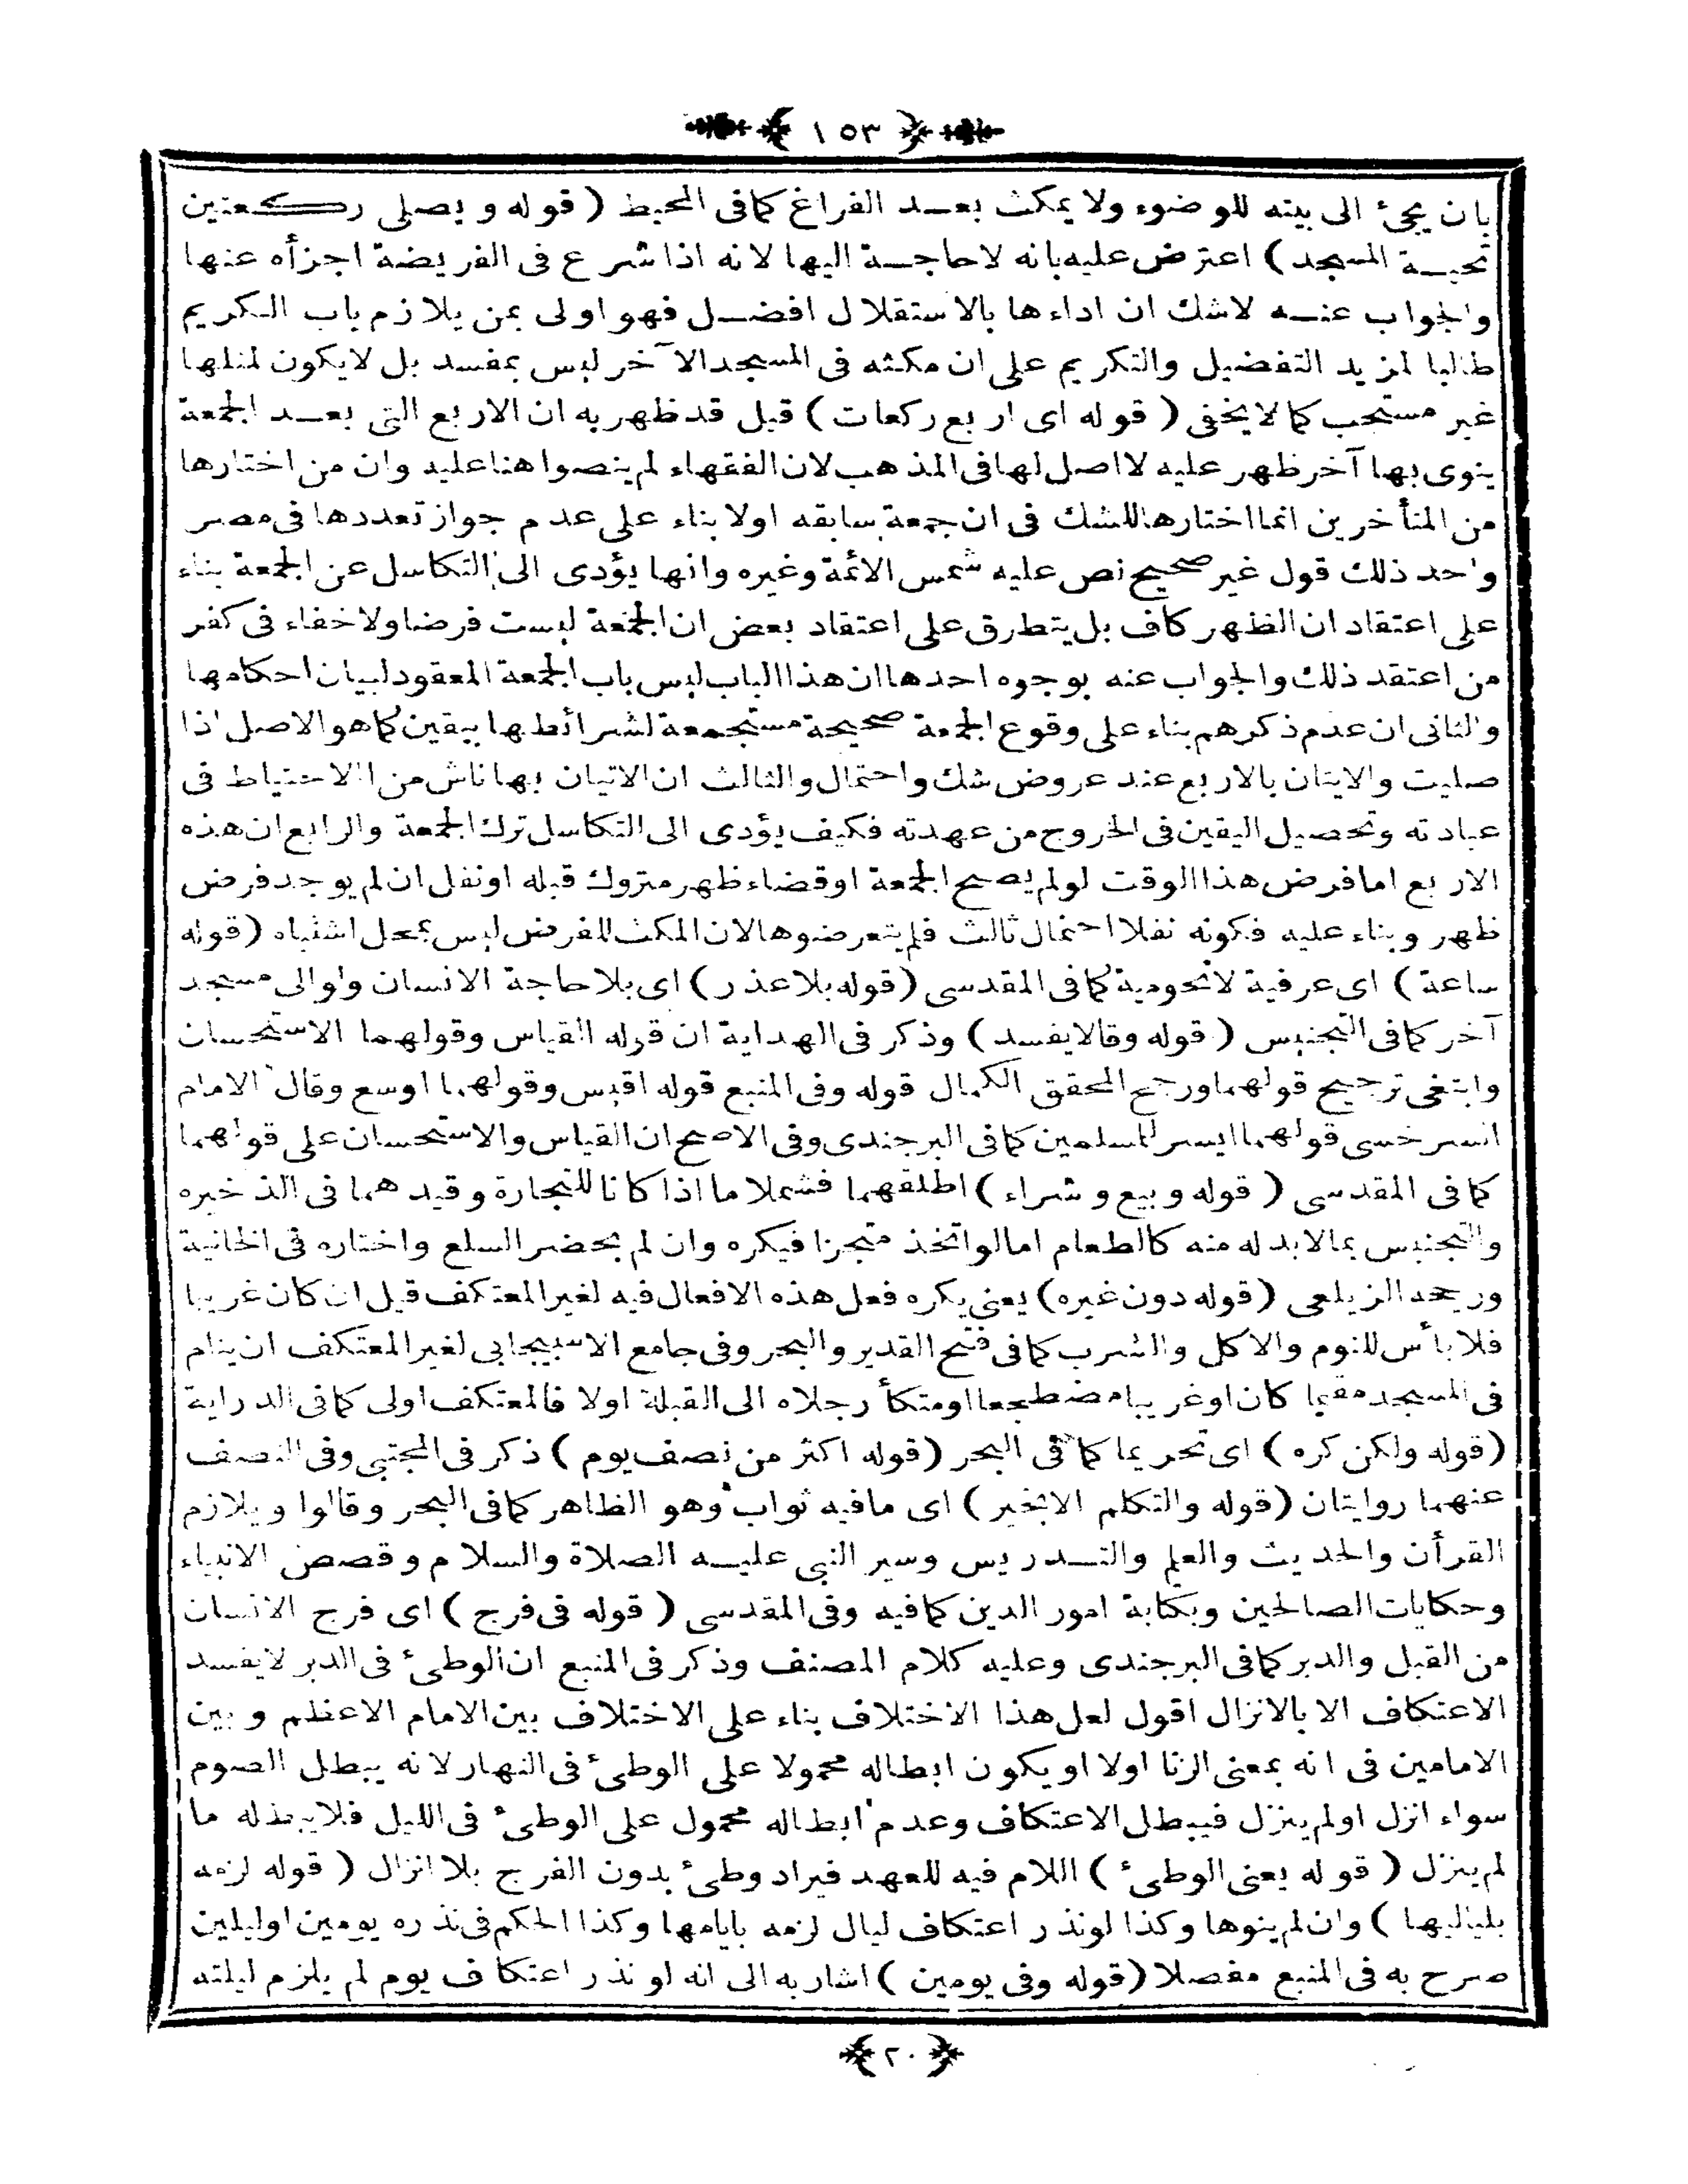 ﴿ ١٥٣ ﴾
بان يجئ الى بيته للوضوء ولا يمكث بعد الفراغ كما فى المحيط ( قوله و يصلى ركعتين
تحية المسجد ) اعترض عليه بانه لا حاجة اليها لانه اذا شرع فى الفريضة اجزأه عنها
والجواب عنه لاشك ان اداءها بالاستقلال افضل فهو اولى بمن يلازم باب الكريم
طالبا لمزيد التفضيل والتكريم على ان مكثه فى المسجد الآخر ليس بمفسد بل لا يكون لمثلها
غير مستحب كما لا يخفى ( قوله اى اربع ركعات ) قيل قد ظهر به ان الاربع التى بعد الجمعة
ينوى بها آخر ظهر عليه لا اصل لها فى المذهب لان الفقهاء لم ينصوا هنا عليه وان من اختارها
من المتأخرين انما اختارها للشك فى ان جمعة سابقه اولا بناء على عدم جواز تعددها فى مصر
واحد ذلك قول غير صحيح نص عليه شمس الائمة وغيره وانها يؤدى الى التكاسل عن الجمعة بناء
على اعتقاد ان الظهر كاف بل يتطرق على اعتقاد بعض ان الجمعة ليست فرضا ولا خفاء فى كفر
من اعتقد ذلك والجواب عنه بوجوه احدها ان هذا الباب ليس باب الجمعة المعقود لبيان احكامها
والثانى ان عدم ذكرهم بناء على وقوع الجمعة صحيحة مستجمعة لشرائطها بيقين كما هو الاصل اذا
صليت والايتان بالاربع عند عروض شك واحتمال والثالث ان الاتيان بها ناش من الاحتياط فى
عبادته وتحصيل اليقين فى الخروج من عهدته فكيف يؤدى الى التكاسل ترك الجمعة والرابع ان هذه
الاربع اما فرض هذا الوقت لو لم يصح الجمعة او قضاء ظهر متروك قبله او نفل ان لم يوجد فرض
ظهر وبناء عليه فكونه نفلا احتمال ثالث فلم يتعرضوها لان المكث للفرض ليس بمحل اشتباه (قوله
ساعة ) اى عرفية لا نجومية كما فى المقدسى (قوله بلا عذر ) اى بلا حاجة الانسان ولو الى مسجد
آخر كما فى التجنيس ( قوله وقالا يفسد ) وذكر فى الهداية ان قوله القياس وقولهما الاستحسان
وابتغى ترجيح قولهما ورجح المحقق الكمال قوله وفى المنبع قوله اقيس وقولهما اوسع وقال الامام
السرخسى قولهما ايسر للمسلمين كما فى البرجندى وفى الاصح ان القياس والاستحسان على قولهما
كما فى المقدسى ( قوله و بيع و شراء ) اطلقهما فشملا ما اذا كانا للتجارة وقيدهما فى الذخيره
والتجنيس بما لا بد له منه كالطعام اما لو اتخذ متجرا فيكره وان لم يحضر السلع واختاره فى الخانية
ورجحه الزيلعى (قوله دون غيره) يعنى يكره فعل هذه الافعال فيه لغير المعتكف قيل ان كان غريبا
فلا بأس للنوم والاكل والشرب كما فى فتح القدير والبحر وفى جامع الاسبيجابى لغير المعتكف ان ينام
فى المسجد مقيما كان او غريبا مضطجعا او متكأ رجلاه الى القبلة اولا فالمعتكف اولى كما فى الدراية
(قوله ولكن كره ) اى تحريما كما فى البحر (قوله اكثر من نصف يوم ) ذكر فى المجتبى وفى النصف
عنهما روايتان (قوله والتكلم الا بخير ) اى مافيه ثواب وهو الظاهر كما فى البحر وقالوا ويلازم
القرأن والحديث والعلم والتدريس وسير النبى عليه الصلاة والسلام وقصص الانبياء
وحكايات الصالحين وبكتابة امور الدين كما فيه وفى المقدسى ( قوله فى فرج ) اى فرج الانسان
من القبل والدبر كما فى البرجندى وعليه كلام المصنف وذكر فى المنبع ان الوطئ فى الدبر لا يفسد
الاعتكاف الا بالانزال اقول لعل هذا الاختلاف بناء على الاختلاف بين الامام الاعظم وبين
الامامين فى انه بمعنى الزنا اولا او يكون ابطاله محمولا على الوطئ فى النهار لانه يبطل الصوم
سواء انزل او لم ينزل فيبطل الاعتكاف وعدم ابطاله محمول على الوطئ فى الليل فلا يبطله ما
لم ينزل ( قوله يعنى الوطئ ) اللام فيه للعهد فيراد وطئ بدون الفرج بلا انزال ( قوله لزمه
بلياليها ) وان لم ينوها وكذا لو نذر اعتكاف ليال لزمه بايامها وكذا الحكم فى نذره يومين او ليلين
صرح به فى المنبع مفصلا (قوله وفى يومين ) اشار به الى انه لو نذر اعتكاف يوم لم يلزم ليلته
﴿ ٢٠ ﴾